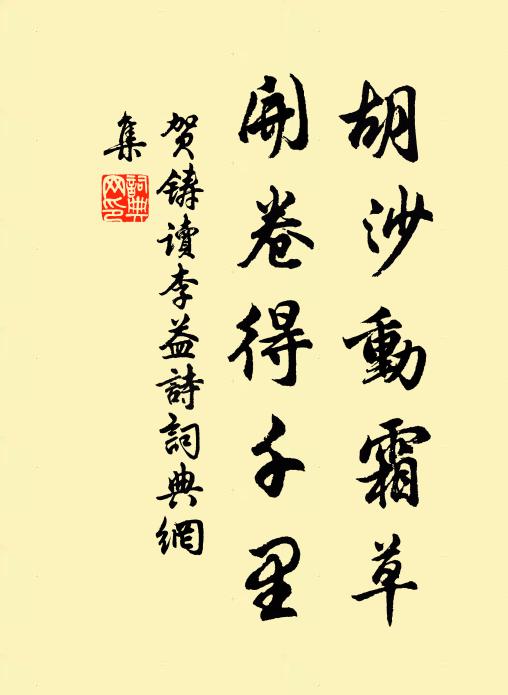 胡沙動霜草
開卷得千里
贺鑄读李益詩詞典網
集
詞典
网印